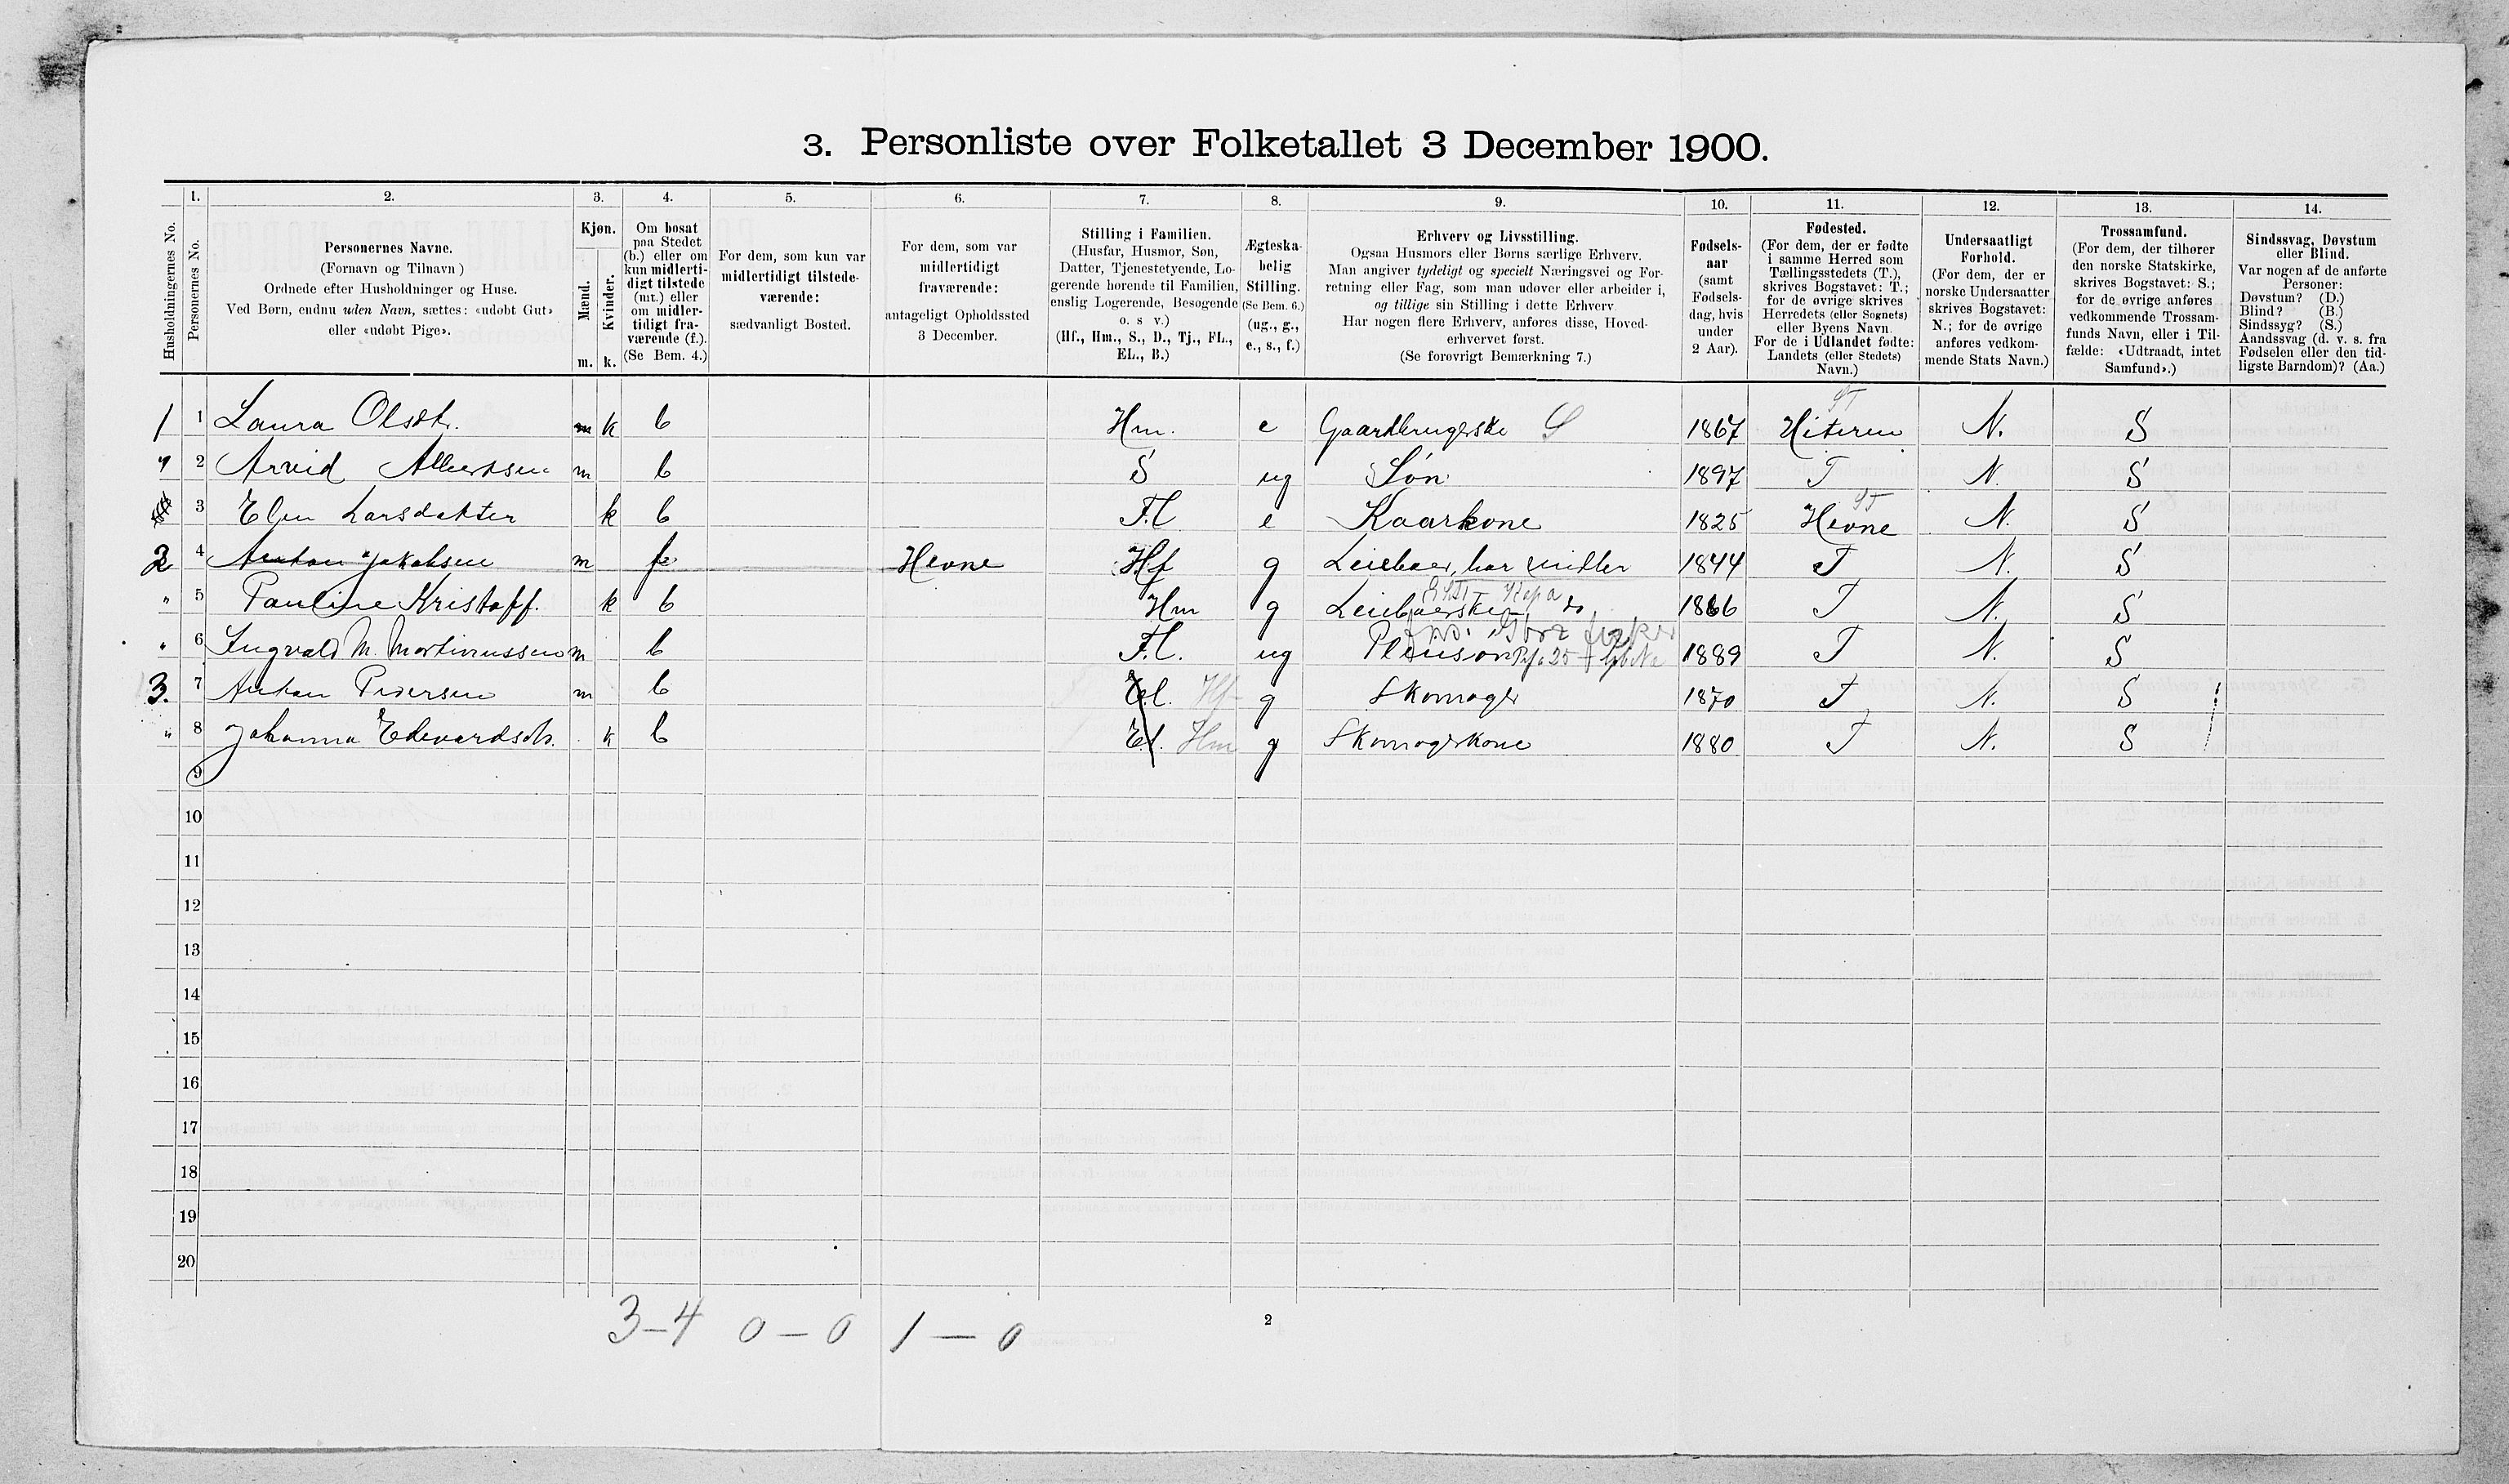 3. Personliste over Folketallet 3 December 1900.
1. 2. 3. 4. 5. 6. 7. 8. 9. 10. 11. 12. 13. 14.
Husholdningernes No.
Personernes No.
Personernes Navne.
(Fornavn og Tilnavn)
Ordnede efter Husholdninger og Huse.
Ved Børn, endnu uden Navn, sættes: «udøbt Gut»
eller «udøbt Pige».
Kjøn.
Mænd.
Kvinder.
m. k.
Om bosat
paa Stedet
(b.) eller om
kun midlerti-
digt tilstede
(mt.) eller
om midler-
tidigt fra-
værende (f.).
(Se Bem. 4.)
For dem, som kun var
midlertidigt tilstede-
værende:
sædvanligt Bosted.
For dem, som var
midlertidigt
fraværende:
antageligt Opholdssted
3 December.
Stilling i Familien.
(Husfar, Husmor, Søn,
Datter, Tjenestetyende, Lo-
gerende hørende til Familien,
enslig Logerende, Besøgende
o. s v.)
(Hf., Hm., S., D., Tj., FL.,
EL., B.)
Ægteska-
belig
Stilling.
(Se Bem. 6.)
(ug., g.,
e., s., f.)
Erhverv og Livsstilling.
Ogsaa Husmors eller Børns særlige Erhverv.
Man angiver tydeligt og specielt Næringsvei og For-
retning eller Fag, som man udøver eller arbeider i,
og tillige sin Stilling i dette Erhverv.
Har nogen flere Erhverv, anføres disse, Hoved-
erhvervet først.
(Se forøvrigt Bemærkning 7.)
Fødsels-
aar
(samt
Fødsels-
dag, hvis
under
2 Aar).
Fødested.
(For dem, der er fødte
i samme Herred som
Tællingsstedets (T.),
skrives Bogstavet: T.;
for de øvrige skrives
Herredets (eller Sognets)
eller Byens Navn.
For de i Udlandet fødte:
Landets (eller Stedets)
Navn.)
Undersaatligt
Forhold.
(For dem, der er
norske Undersaatter
skrives Bogstavet:
N.; for de øvrige
anføres vedkom-
mende Stats Navn.)
Trossamfund.
(For dem, der tilhører
den norske Statskirke,
skrives Bogstavet: S.;
for de øvrige anføres
vedkommende Trossam-
funds Navn, eller i Til-
fælde: «Udtraadt, intet
Samfund».)
Sindssvag, Døvstum
eller Blind.
Var nogen af de anførte
Personer:
Døvstum? (D.)
Blind? (B.)
Sindssyg? (S.)
Aandssvag (d. v. s. fra
Fødselen eller den tid-
ligste Barndom)? (Aa.)
1 1 Laura Olsdt. m k b Hm. e Gaardbrugerske S 1867 Hiteren N. S
" 2 Arvid Albertsen m b S ug Søn 1897 T N. S
3 Elen Larsdatter k b F.l e Kaarkone 1825 Hevne N. S
2 4 Anton Jakobsen m f Hevne Hf g Leieboer, har midler 1844 T N. S
" 5 Pauline Kristoff. k b Hm g Leieboerske do 1866 T N. S
" 6 Ingvald M. Martinussen m b F.l. ug Pleiesøn 1889 T N. S
3. 7 Anton Pedersen m b E.l. Hf g Skomager 1870 T N. S
" 8 Johanna Edevardsdt. k b El. Hm g Skomagerkone 1880 T N. S
9
10
11
12
13
14
15
16
17
18
19
20
3–4 0–0 1–0
2